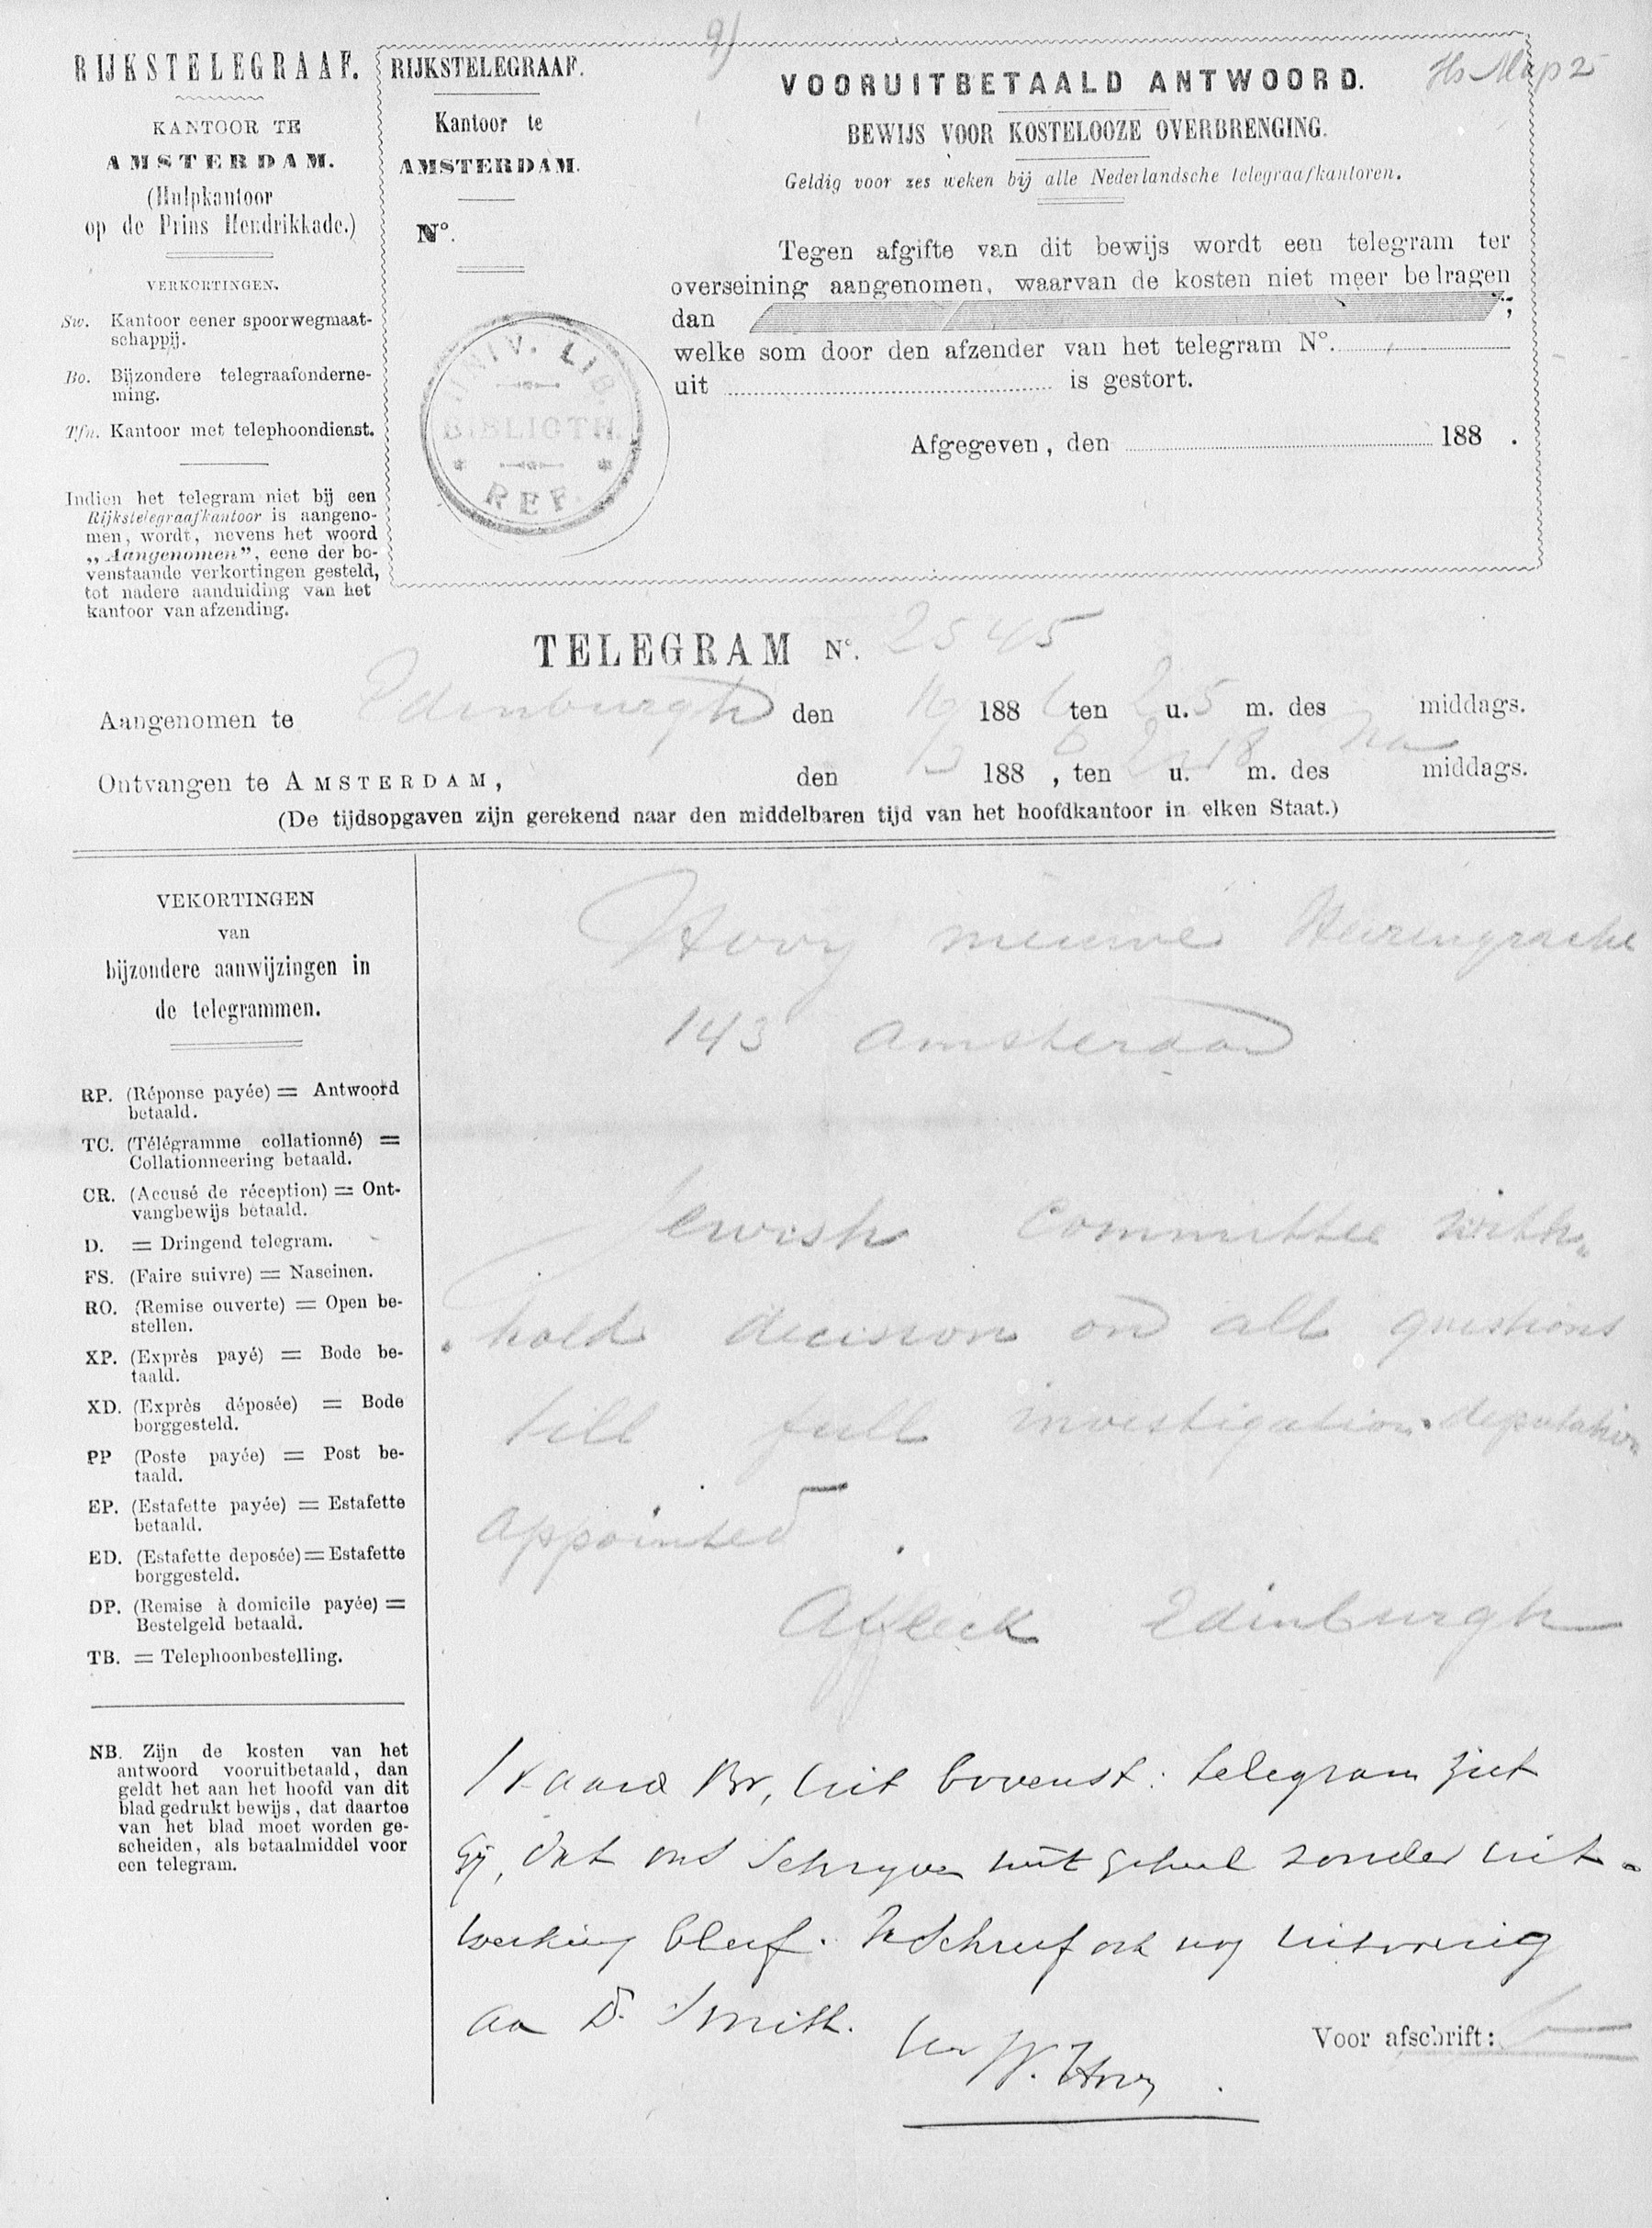 9)
Hs Map 2
RIJKSTELEGRAAF.
KANTOOR TE
AMSTERDAM.
(Hulpkantoor
op de Prins Hendrikkade.)
VERKORTINGEN.
Sw. Kantoor eener spoorwegmaat-
schappij.
Bo. Bijzondere telegraafonderne-
ming.
Tfn. Kantoor met telephoondienst.
Indien het telegram niet bij een
Rijkstelegraafkantoor is aangeno-
men, wordt, nevens het woord
„Aangenomen”, eene der bo-
venstaande verkortingen gesteld,
tot nadere aanduiding van het
kantoor van afzending.
RIJKSTELEGRAAF.
Kantoor te
AMSTERDAM.
No.
UNIV. LIB.
BIBLIOTH.
REF.
VOORUITBETAALD ANTWOORD.
BEWIJS VOOR KOSTELOOZE OVERBRENGING.
Geldig voor zes weken bij alle Nederlandsche telegraafkantoren.
Tegen afgifte van dit bewijs wordt een telegram ter
overseining aangenomen, waarvan de kosten niet meer belragen
dan ;
welke som door den afzender van het telegram No.
uit is gestort.
Afgegeven, den 188 .
TELEGRAM No. 2545
Aangenomen te Edinburgh den 16 1886 ten 2 u. 5 m. des middags.
Ontvangen te AMSTERDAM, den 188 , ten 2 u. 18 m. des na middags.
(De tijdsopgaven zijn gerekend naar den middelbaren tijd van het hoofdkantoor in elken Staat.)
VEKORTINGEN
van
bijzondere aanwijzingen in
de telegrammen.
RP. (Réponse payée) = Antwoord
betaald.
TC. (Télégramme collationné) =
Collationneering betaald.
CR. (Accusé de réception) = Ont-
vangbewijs betaald.
D. = Dringend telegram.
FS. (Faire suivre) = Naseinen.
RO. (Remise ouverte) = Open be-
stellen.
XP. (Exprès payé) = Bode be-
taald.
XD. (Exprès déposée) = Bode
borggesteld.
PP (Poste payée) = Post be-
taald.
EP. (Estafette payée) = Estafette
betaald.
ED. (Estafette deposée) = Estafette
borggesteld.
DP. (Remise à domicile payée) =
Bestelgeld betaald.
TB. = Telephoonbestelling.
NB. Zijn de kosten van het
antwoord vooruitbetaald, dan
geldt het aan het hoofd van dit
blad gedrukt bewijs, dat daartoe
van het blad moet worden ge-
scheiden, als betaalmiddel voor
een telegram.
Hovy nieuwe Heerengracht
143 Amsterdam
Jewish Committee with-
hold decision on all questions
till full investigation. deputation
appointed.
Affleck Edinburgh
Waarde Br, Uit bovenst: telegram ziet
Gij, dat ons schrijven niet geheel zonder uit-
werking bleef. Ik schreef ook nog uitvoerig
aa Dr. Smith.
W. Hovy
Voor afschrift: